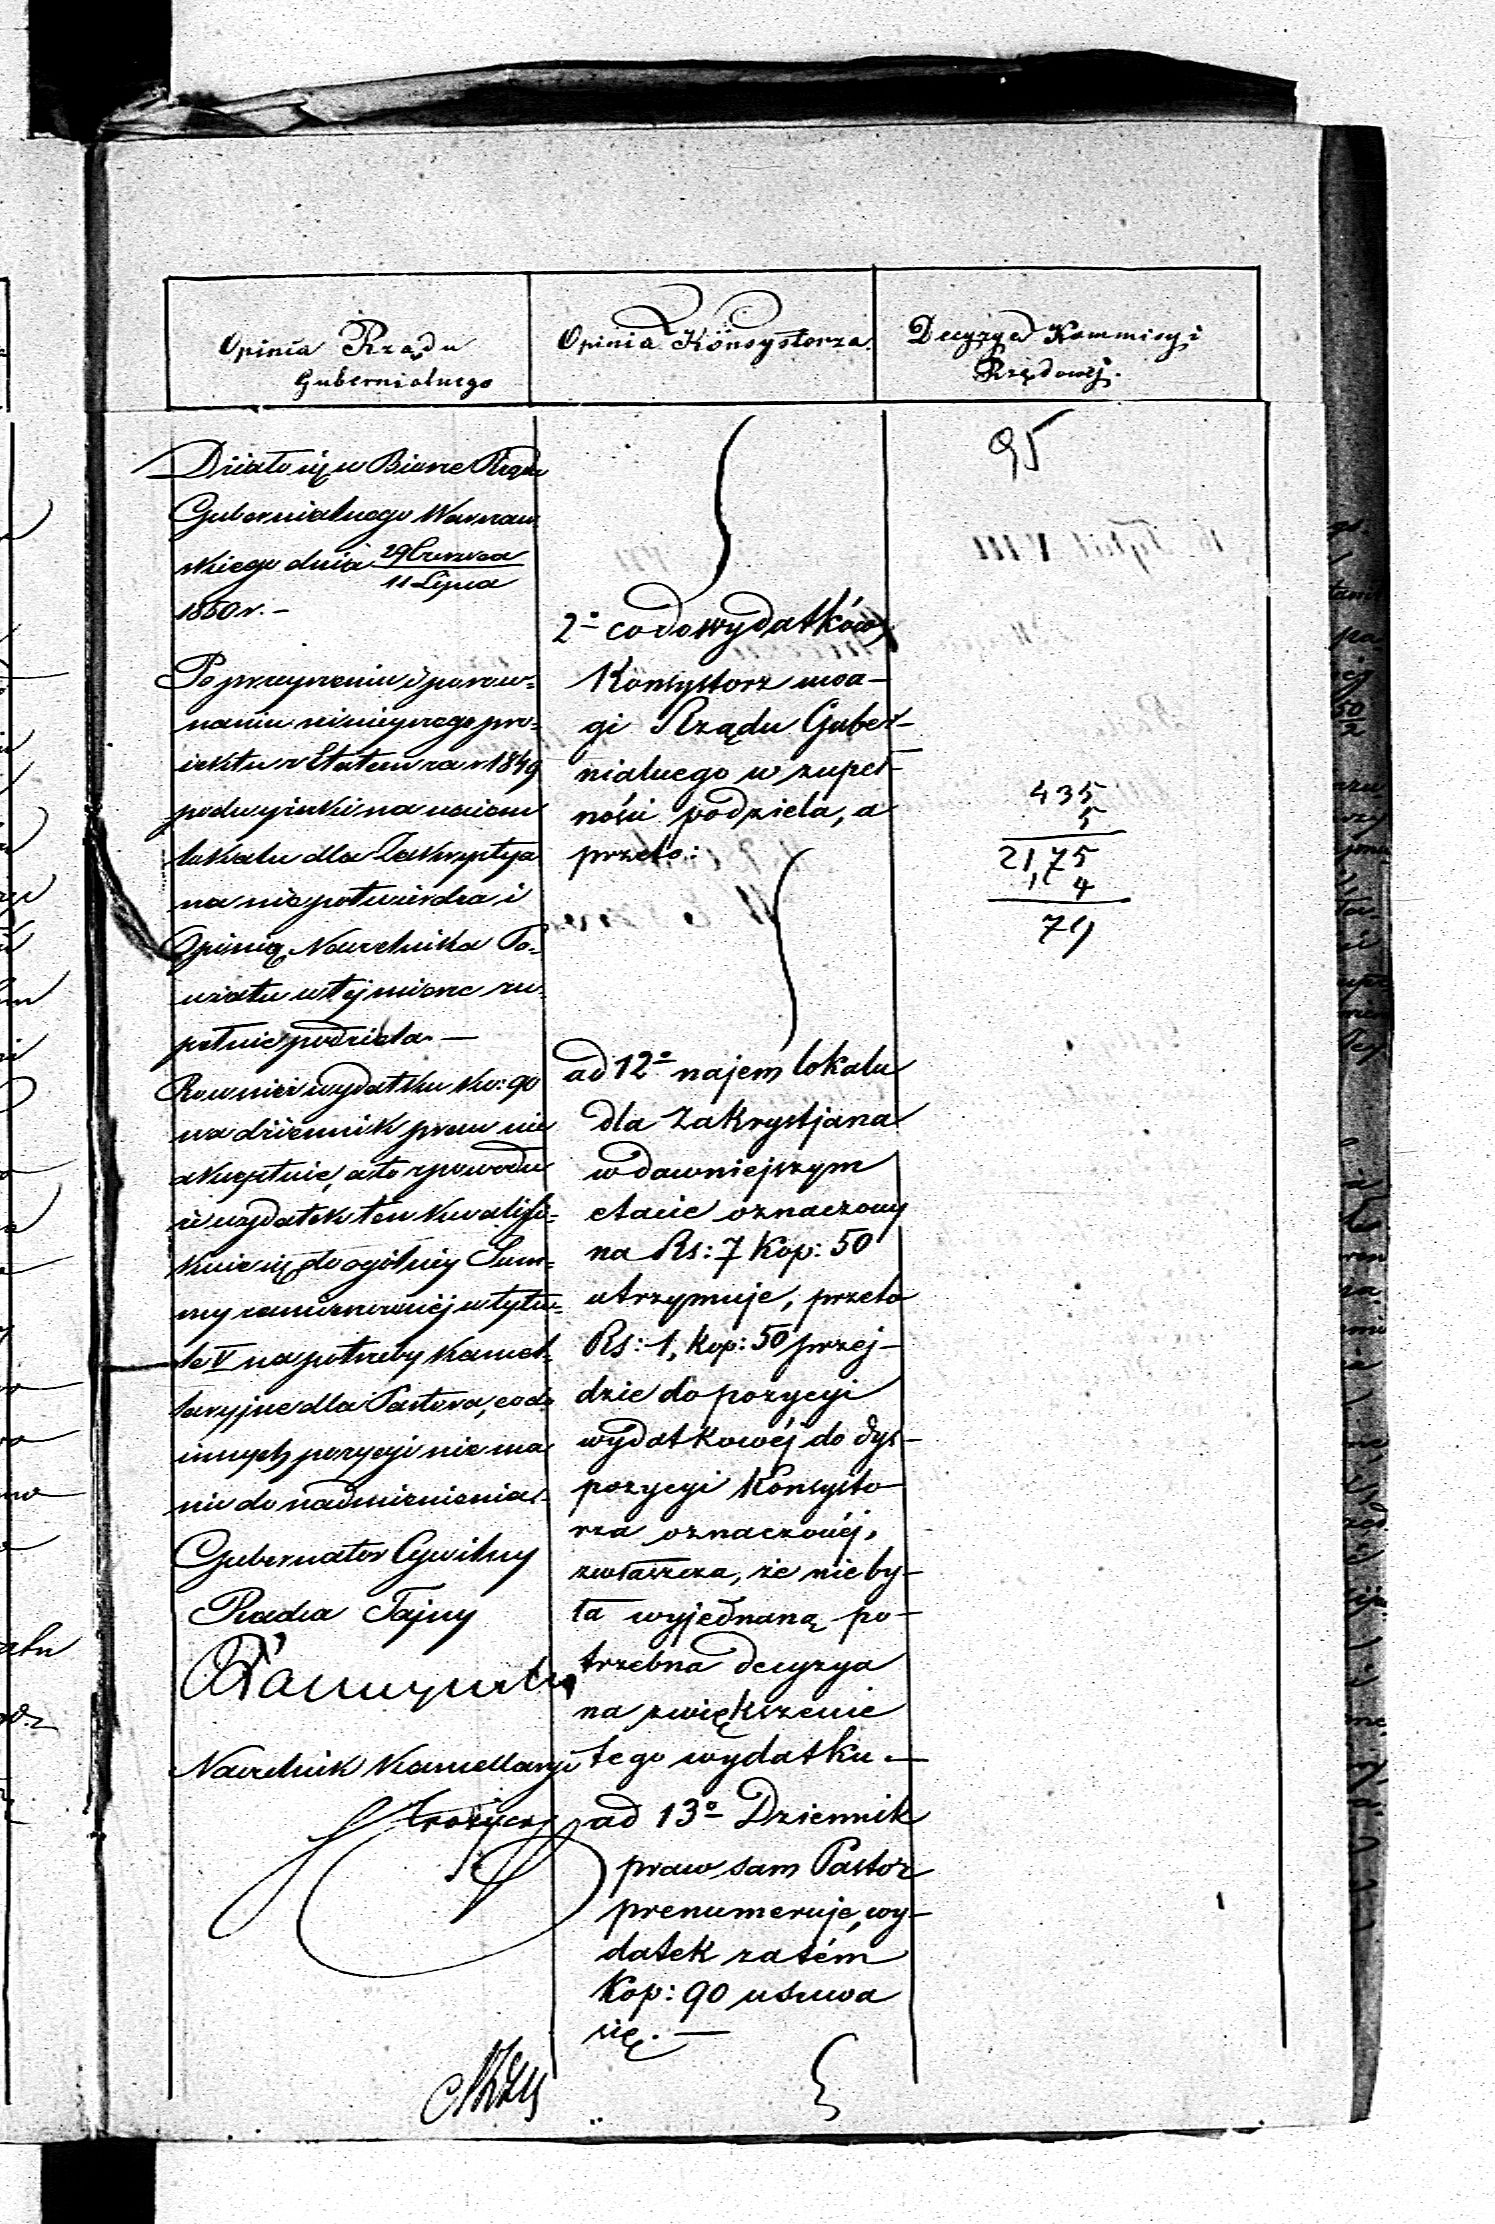 Opinia Rządu
Gubernialnego
Opinia Konsystorza.
Decyzya Kommissyi
Rządowéj.
95
Działo się w Biórze Rządu
Gubernialnego Warszaw-
skiego dnia 29 Czerwca
11 Lipca
1850 r. –
Po przejrzeniu i porów-
naniu niniejszego pro-
jektu z Etatem za r. 1849
podwyżki na najem
lokalu dla Zakrystya
na nie potwierdza i
Opinią Naczelnika Po-
wiatu w tej mierze zu-
pełnie podziela. —
Rownież wydatku kop: 90
na dziennik praw nie
akceptuje, a to z powodu
iż wydatek ten kwalifi-
kuje się do ogólnéj Sum-
my zamieszczonéj w tytu-
le V na potrzeby Kancel-
laryjne dla Pastora, co do
innych pozycji nie ma
nic do nadmienienia. –
Gubernator Cywilny
Radca Tajny
Naczelnik Kancellaryi
2° co do wydatków
Konsystorz uwa-
gi Rządu Guber-
nialnego w zupeł-
ności podziela, a
przeto:
ad 12° najem lokalu
dla Zakrystjana
w dawniejszym
etacie oznaczony
na Rs: 7 Kop: 50
utrzymuje, przeto
Rs: 1, kop: 50 przej-
dzie do pozycyi
wydatkowéj do dys-
pozycyi Konsysto-
rza oznaczonéj,
zwłaszcza, że nie by-
ła wyjednaną po-
trzebna decyzya
na zwiększenie
tego wydatku. —
ad 13° Dziennik
praw sam Pastor
prenumeruje, wy-
datek zatém
Kop: 90 usuwa
się. —
435
5
21,75
4
79